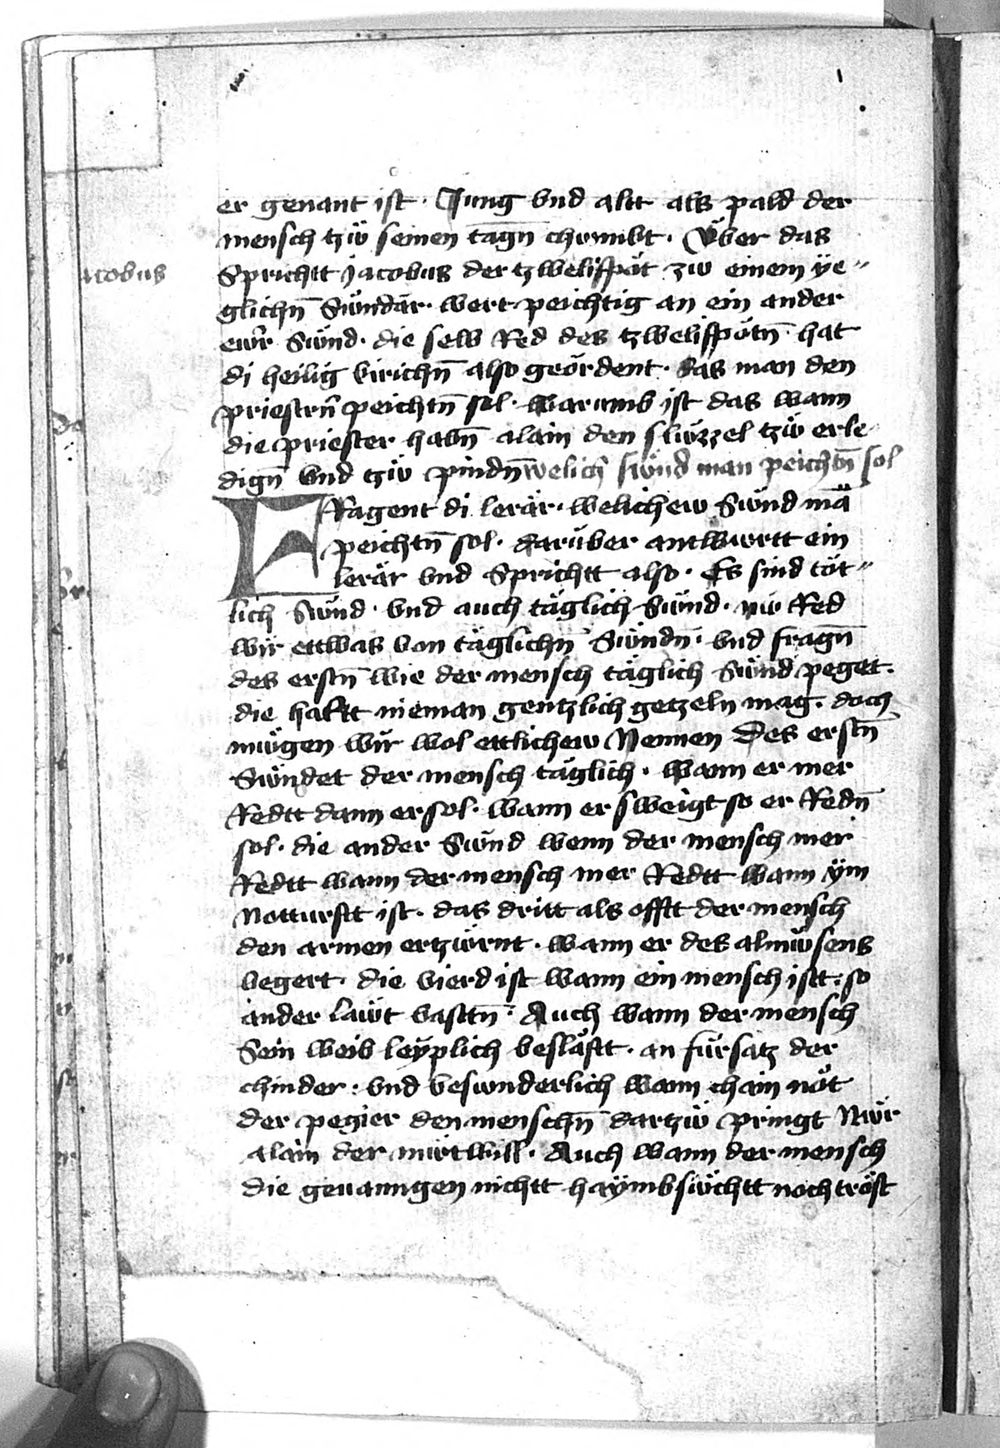 er genant ist · Jung vnd altt als pald der
mensch tzü seinen tagn̄ chümbt · Vͤber das
Jacobus
Sprichtt Jacobus der tzwelifpöt zw einem ÿe„
glichn̄ Sündär · wert peichtig an ein ander
ewr̄ Sünd · die selb Red des tzwelifpötn̄ hat
di heilig kirichn̄ also geördent · das man den
priestrn̄ peichtn̄ sol · warumb ist das wann
die priester habn̄ alain den slüzzel tzü erle
dign̄ vnd tzü pindn̄ welich̄ sünd man peichtn̄ sol
FRagent di lerär · welichew Sünd mā
peichtn̄ sol · darüber antwurtt ein
lerär vnd Sprichtt also · Es sind töt„
lich Sünd · vnd auch täglich Sünd · nü Red
wir ettwas von täglichn̄ Sündn̄ · vnd fragn̄
des erstn̄ wie der mensch täglich Sünd peget ·
die haltt nieman gentzlich getzeln mag · doch
mügen wir wol ettlichew Nennen Des erstn̄
Sündet der mensch täglich · wann er mer
Redtt dann er sol · wann er sweigt so er Redn̄
sol · die ander Sünd wenn der mensch mer
Redtt wann der mensch mer Redtt wann ÿm
Notturftt ist · das dritt als offtt der mensch
den armen ertzürnt · wann er des almüsens
begert · die vierd ist wann ein mensch istt · so
ander läwt vasttn̄ · Auch wann der mensch
Sein weib leÿplich besläftt · an fürsatz der
chinder · vnd besunderlich wann chain nöt
der pegier den menschn̄ dartzü pringt Nür
alain der mütwill · Auch wann der mensch
die geuanngen nichtt haÿmbsüchtt noch tröst